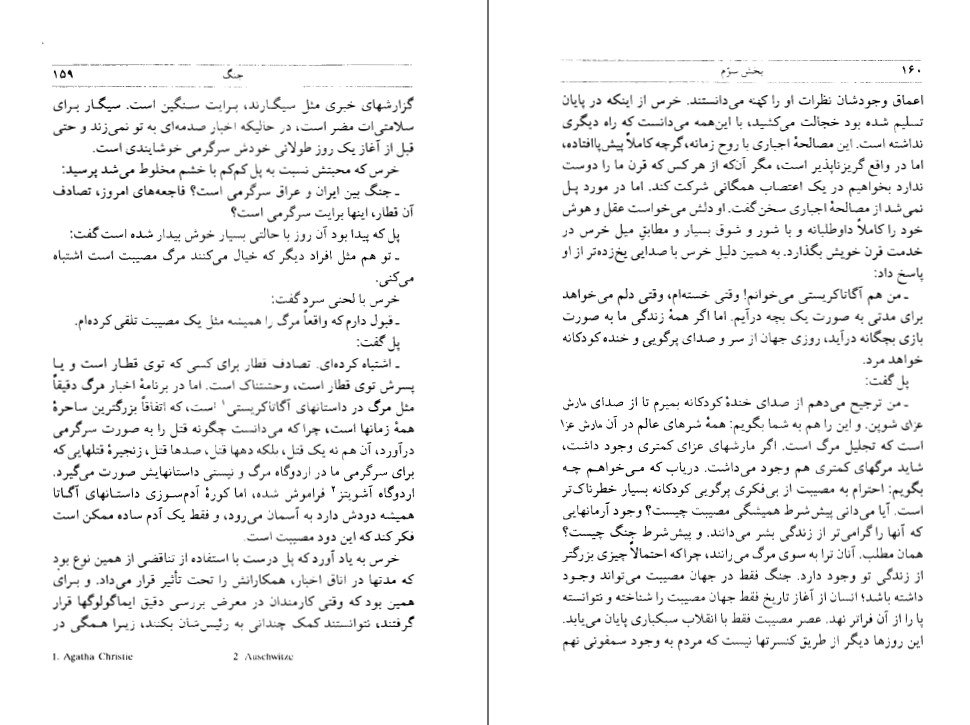 ۱۵۹
جنگ
گزارشهای خبری مثل سیگارند، برایت سنگین است. سیگار برای
سلامتی‌ات مضر است، در حالیکه اخبار صدمه‌ای به تو نمی‌زند و حتی
قبل از آغاز یک روز طولانی خودش سرگرمی خوشایندی است.
خرس که محبتش نسبت به پل کم‌کم با خشم مخلوط می‌شد پرسید:
ـ جنگ بین ایران و عراق سرگرمی است؟ فاجعه‌های امروز، تصادف
آن قطار، اینها برایت سرگرمی است؟
پل که پیدا بود آن روز با حالتی بسیار خوش بیدار شده است گفت:
ـ تو هم مثل افراد دیگر که خیال می‌کنند مرگ مصیبت است اشتباه
می‌کنی.
خرس با لحنی سرد گفت:
ـ قبول دارم که واقعاً مرگ را همیشه مثل یک مصیبت تلقی کرده‌ام.
پل گفت:
ـ اشتباه کرده‌ای. تصادف قطار برای کسی که توی قطار است و یا
پسرش توی قطار است، وحشتناک است. اما در برنامهٔ اخبار مرگ دقیقاً
مثل مرگ در داستانهای آگاتاکریستی۱ است، که اتفاقاً بزرگترین ساحرهٔ
همهٔ زمانها است، چرا که می‌دانست چگونه قتل را به صورت سرگرمی
درآورد، آن هم نه یک قتل، بلکه دهها قتل، صدها قتل، زنجیرهٔ قتلهایی که
برای سرگرمی ما در اردوگاه مرگ و نیستی داستانهایش صورت می‌گیرد.
اردوگاه آشویتز۲ فراموش شده، اما کورهٔ آدم‌سوزی داستانهای آگاتا
همیشه دودش دارد به آسمان می‌رود، و فقط یک آدم ساده ممکن است
فکر کند که این دود مصیبت است.
خرس به یاد آورد که پل درست با استفاده از تناقضی از همین نوع بود
که مدتها در اتاق اخبار، همکارانش را تحت تأثیر قرار می‌داد. و برای
همین بود که وقتی کارمندان در معرض بررسی دقیق ایماگولوگها قرار
گرفتند، نتوانستند کمک چندانی به رئیس‌شان بکنند، زیرا همگی در
1. Agatha Christie 2 Auschwitze
۱۶۰
بخش سوّم
اعماق وجودشان نظرات او را کهنه می‌دانستند. خرس از اینکه در پایان
تسلیم شده بود خجالت می‌کشید، با این‌همه می‌دانست که راه دیگری
نداشته است. این مصالحهٔ اجباری با روح زمانه، گرچه کاملاً پیش‌پاافتاده،
اما در واقع گریزناپذیر است، مگر آن‌که از هر کس که قرن ما را دوست
ندارد بخواهیم در یک اعتصاب همگانی شرکت کند. اما در مورد پل
نمی‌شد از مصالحهٔ اجباری سخن گفت. او دلش می‌خواست عقل و هوش
خود را کاملاً داوطلبانه و با شور و شوق بسیار و مطابق میل خرس در
خدمت قرن خویش بگذارد. به همین دلیل خرس با صدایی یخ‌زده‌تر از او
پاسخ داد:
ـ من هم آگاتاکریستی می‌خوانم! وقتی خسته‌ام، وقتی دلم می‌خواهد
برای مدتی به صورت یک بچه درآیم. اما اگر همهٔ زندگی ما به صورت
بازی بچگانه درآید، روزی جهان از سر و صدای پرگویی و خنده کودکانه
خواهد مرد.
پل گفت:
ـ من ترجیح می‌دهم از صدای خندهٔ کودکانه بمیرم تا از صدای مارش
عزای شوپن. و این را هم به شما بگویم: همهٔ شرهای عالم در آن مارش عزا
است که تجلیل مرگ است. اگر مارشهای عزای کمتری وجود داشت،
شاید مرگهای کمتری هم وجود می‌داشت. دریاب که می‌خواهم چه
بگویم: احترام به مصیبت از بی‌فکری پرگویی کودکانه بسیار خطرناک‌تر
است. آیا می‌دانی پیش‌شرط همیشگی مصیبت چیست؟ وجود آرمانهایی
که آنها را گرامی‌تر از زندگی بشر می‌دانند. و پیش‌شرط جنگ چیست؟
همان مطلب. آنان ترا به سوی مرگ می‌رانند، چرا که احتمالاً چیزی بزرگتر
از زندگی تو وجود دارد. جنگ فقط در جهان مصیبت می‌تواند وجود
داشته باشد؛ انسان از آغاز تاریخ فقط جهان مصیبت را شناخته و نتوانسته
پا را از آن فراتر نهد. عصر مصیبت فقط با انقلاب سبکباری پایان می‌یابد.
این روزها دیگر از طریق کنسرتها نیست که مردم به وجود سمفونی نهم